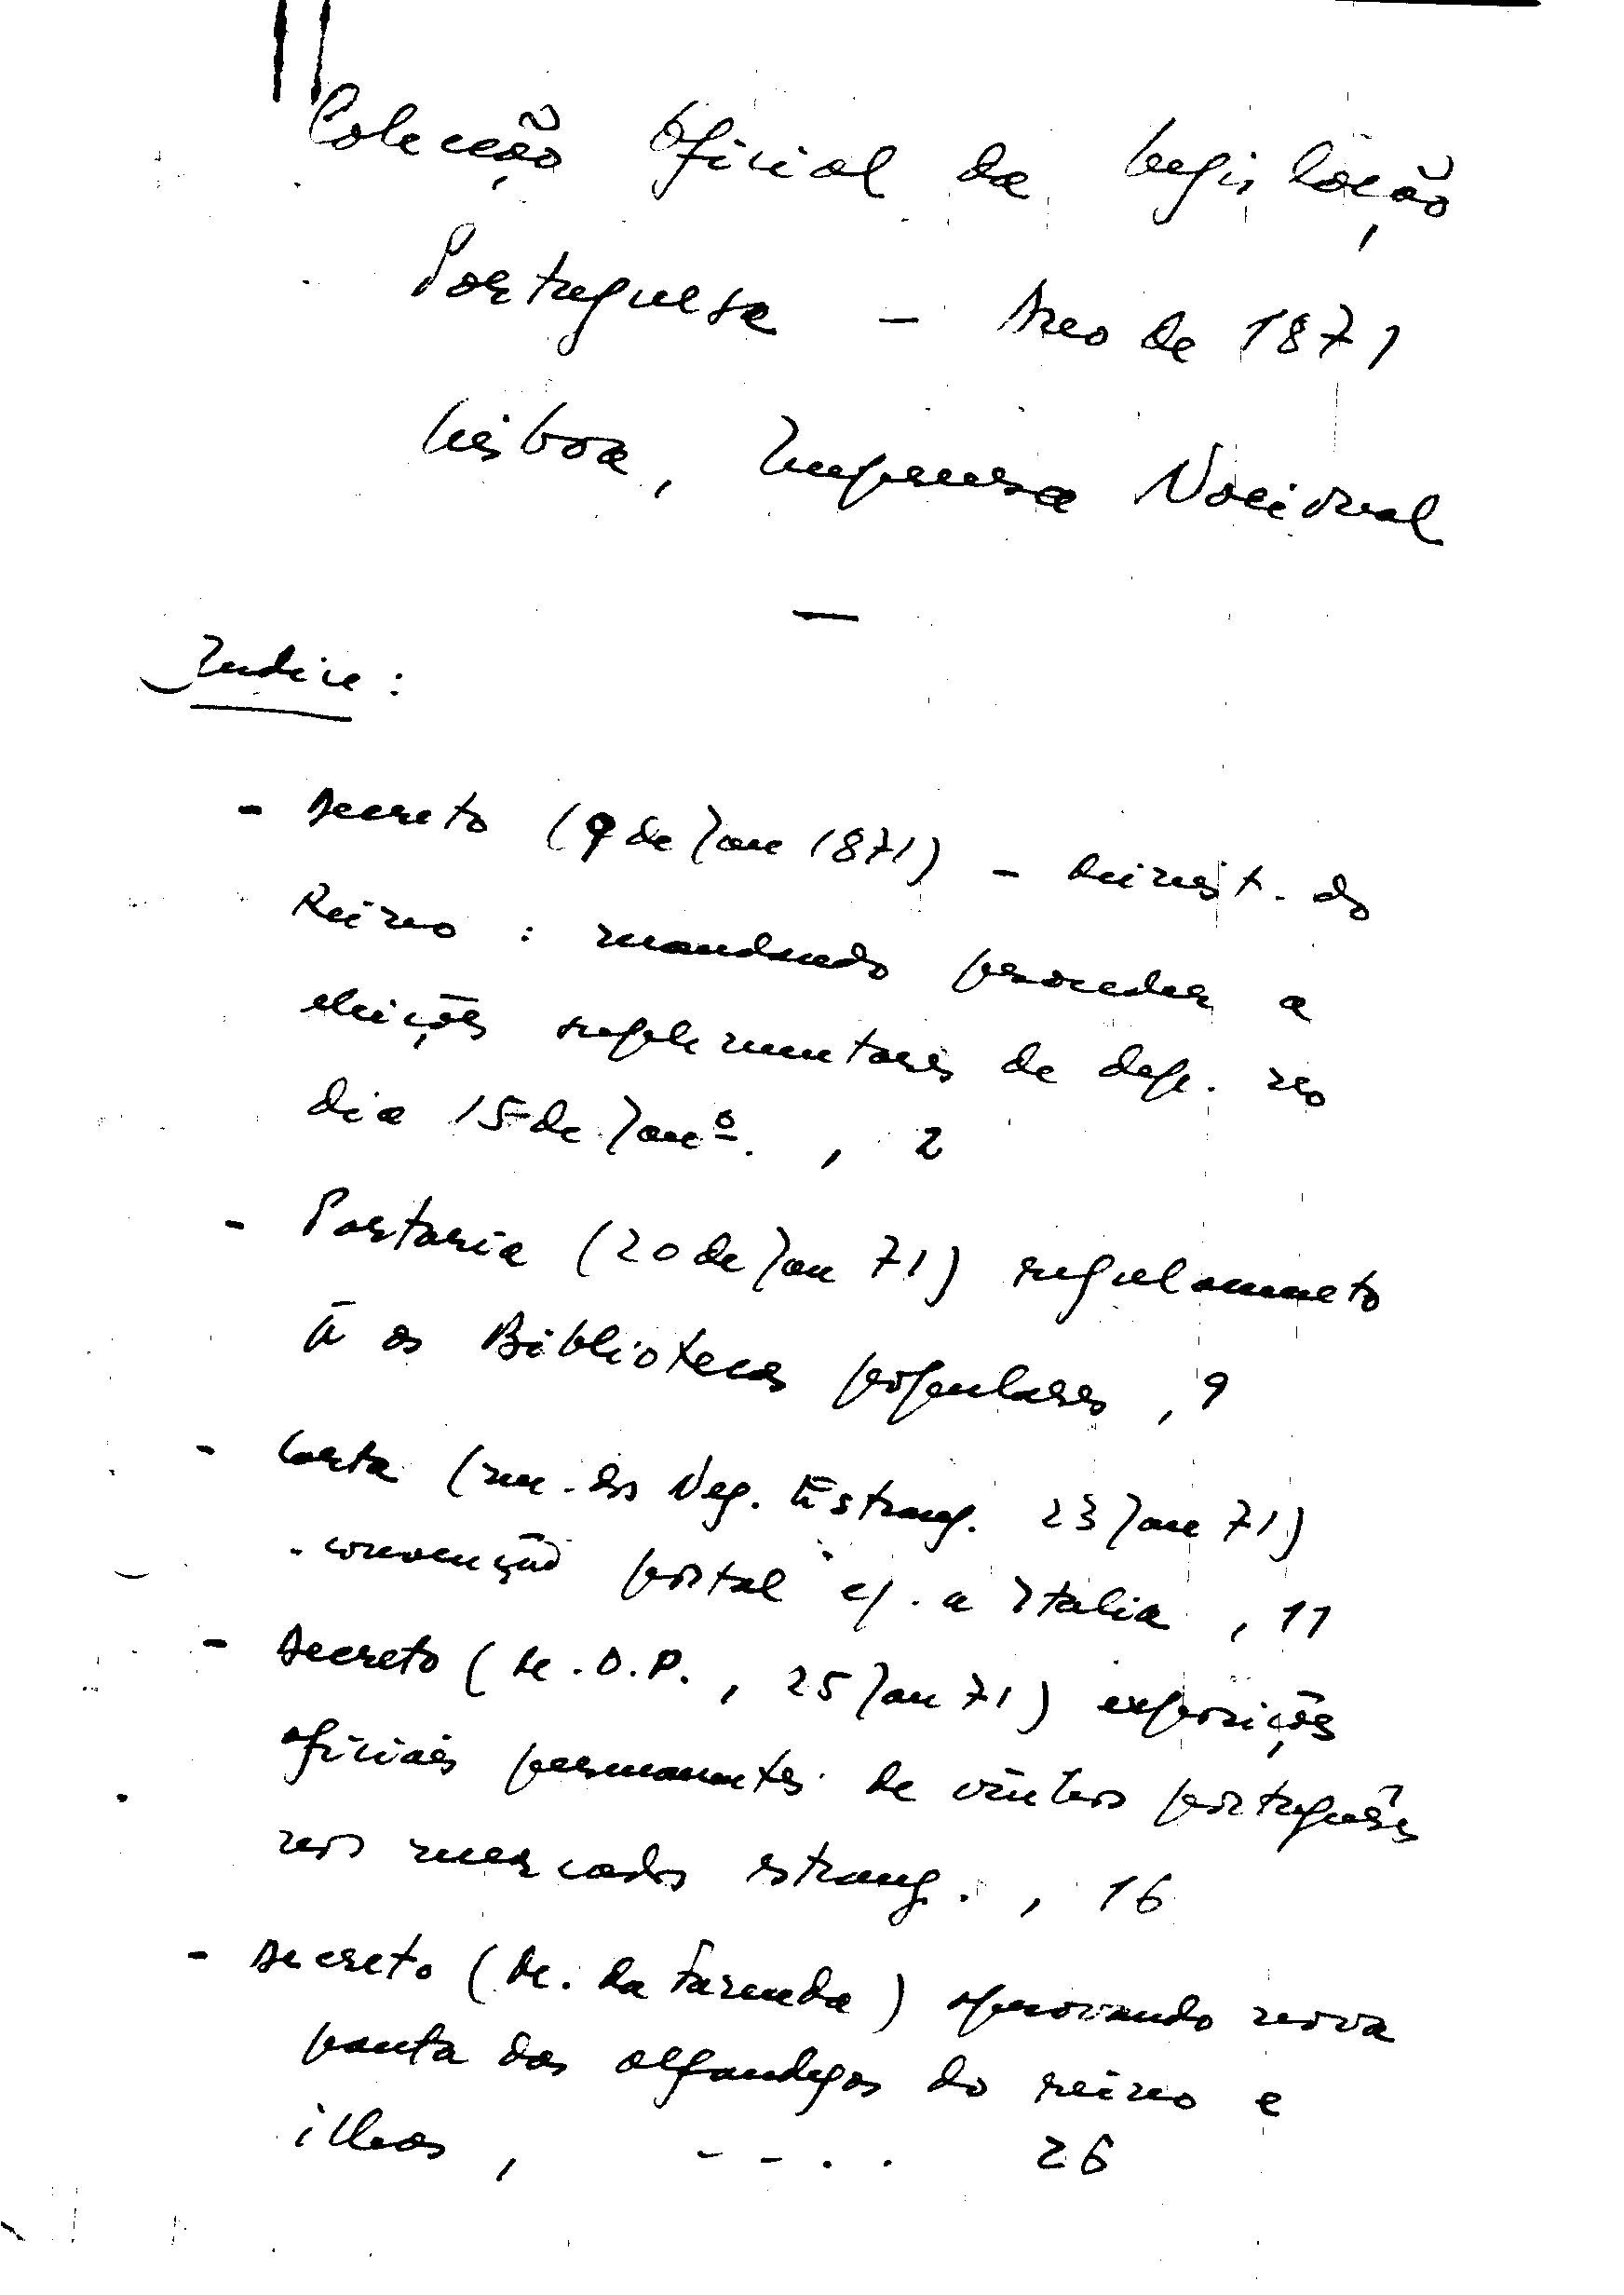 Colecção Oficial da Legislação
Portuguesa - Ano de 1871
Lisboa, Imprensa Nacional
Indice :
- Decreto (9 de Jan 1871) - Minist. do
Reino : mandando proceder a
eleições suplementares de dep. no
dia 15 de Janº. , 2
- Portaria (20 de Jan 71) regulamento
os Bibliotecas populares , 9
- Carta (m. dos Neg. Estrang. 23 Jan 71)
- convenção postal c/. a Italia , 11
- Decreto (M.O.P. , 25 Jan 71) exposições
oficiais permanentes de vinhos português
nos mercados estrang. , 16
- Decreto (M. da Fazenda) aprovando nova
pauta das alfandegas do reino e
ilhas , - - . . 26